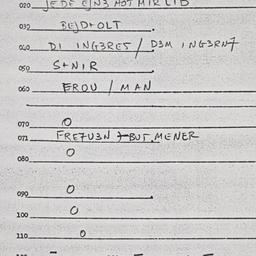 020
030 BEJD+OLT
040 DI ING3RES / D3M ING3RN7
050 S+NIR
060 FROU / MAN
070 O
071 FRE7U3N 7-BUT.MENER
080 O
090 O
100 O
110 O